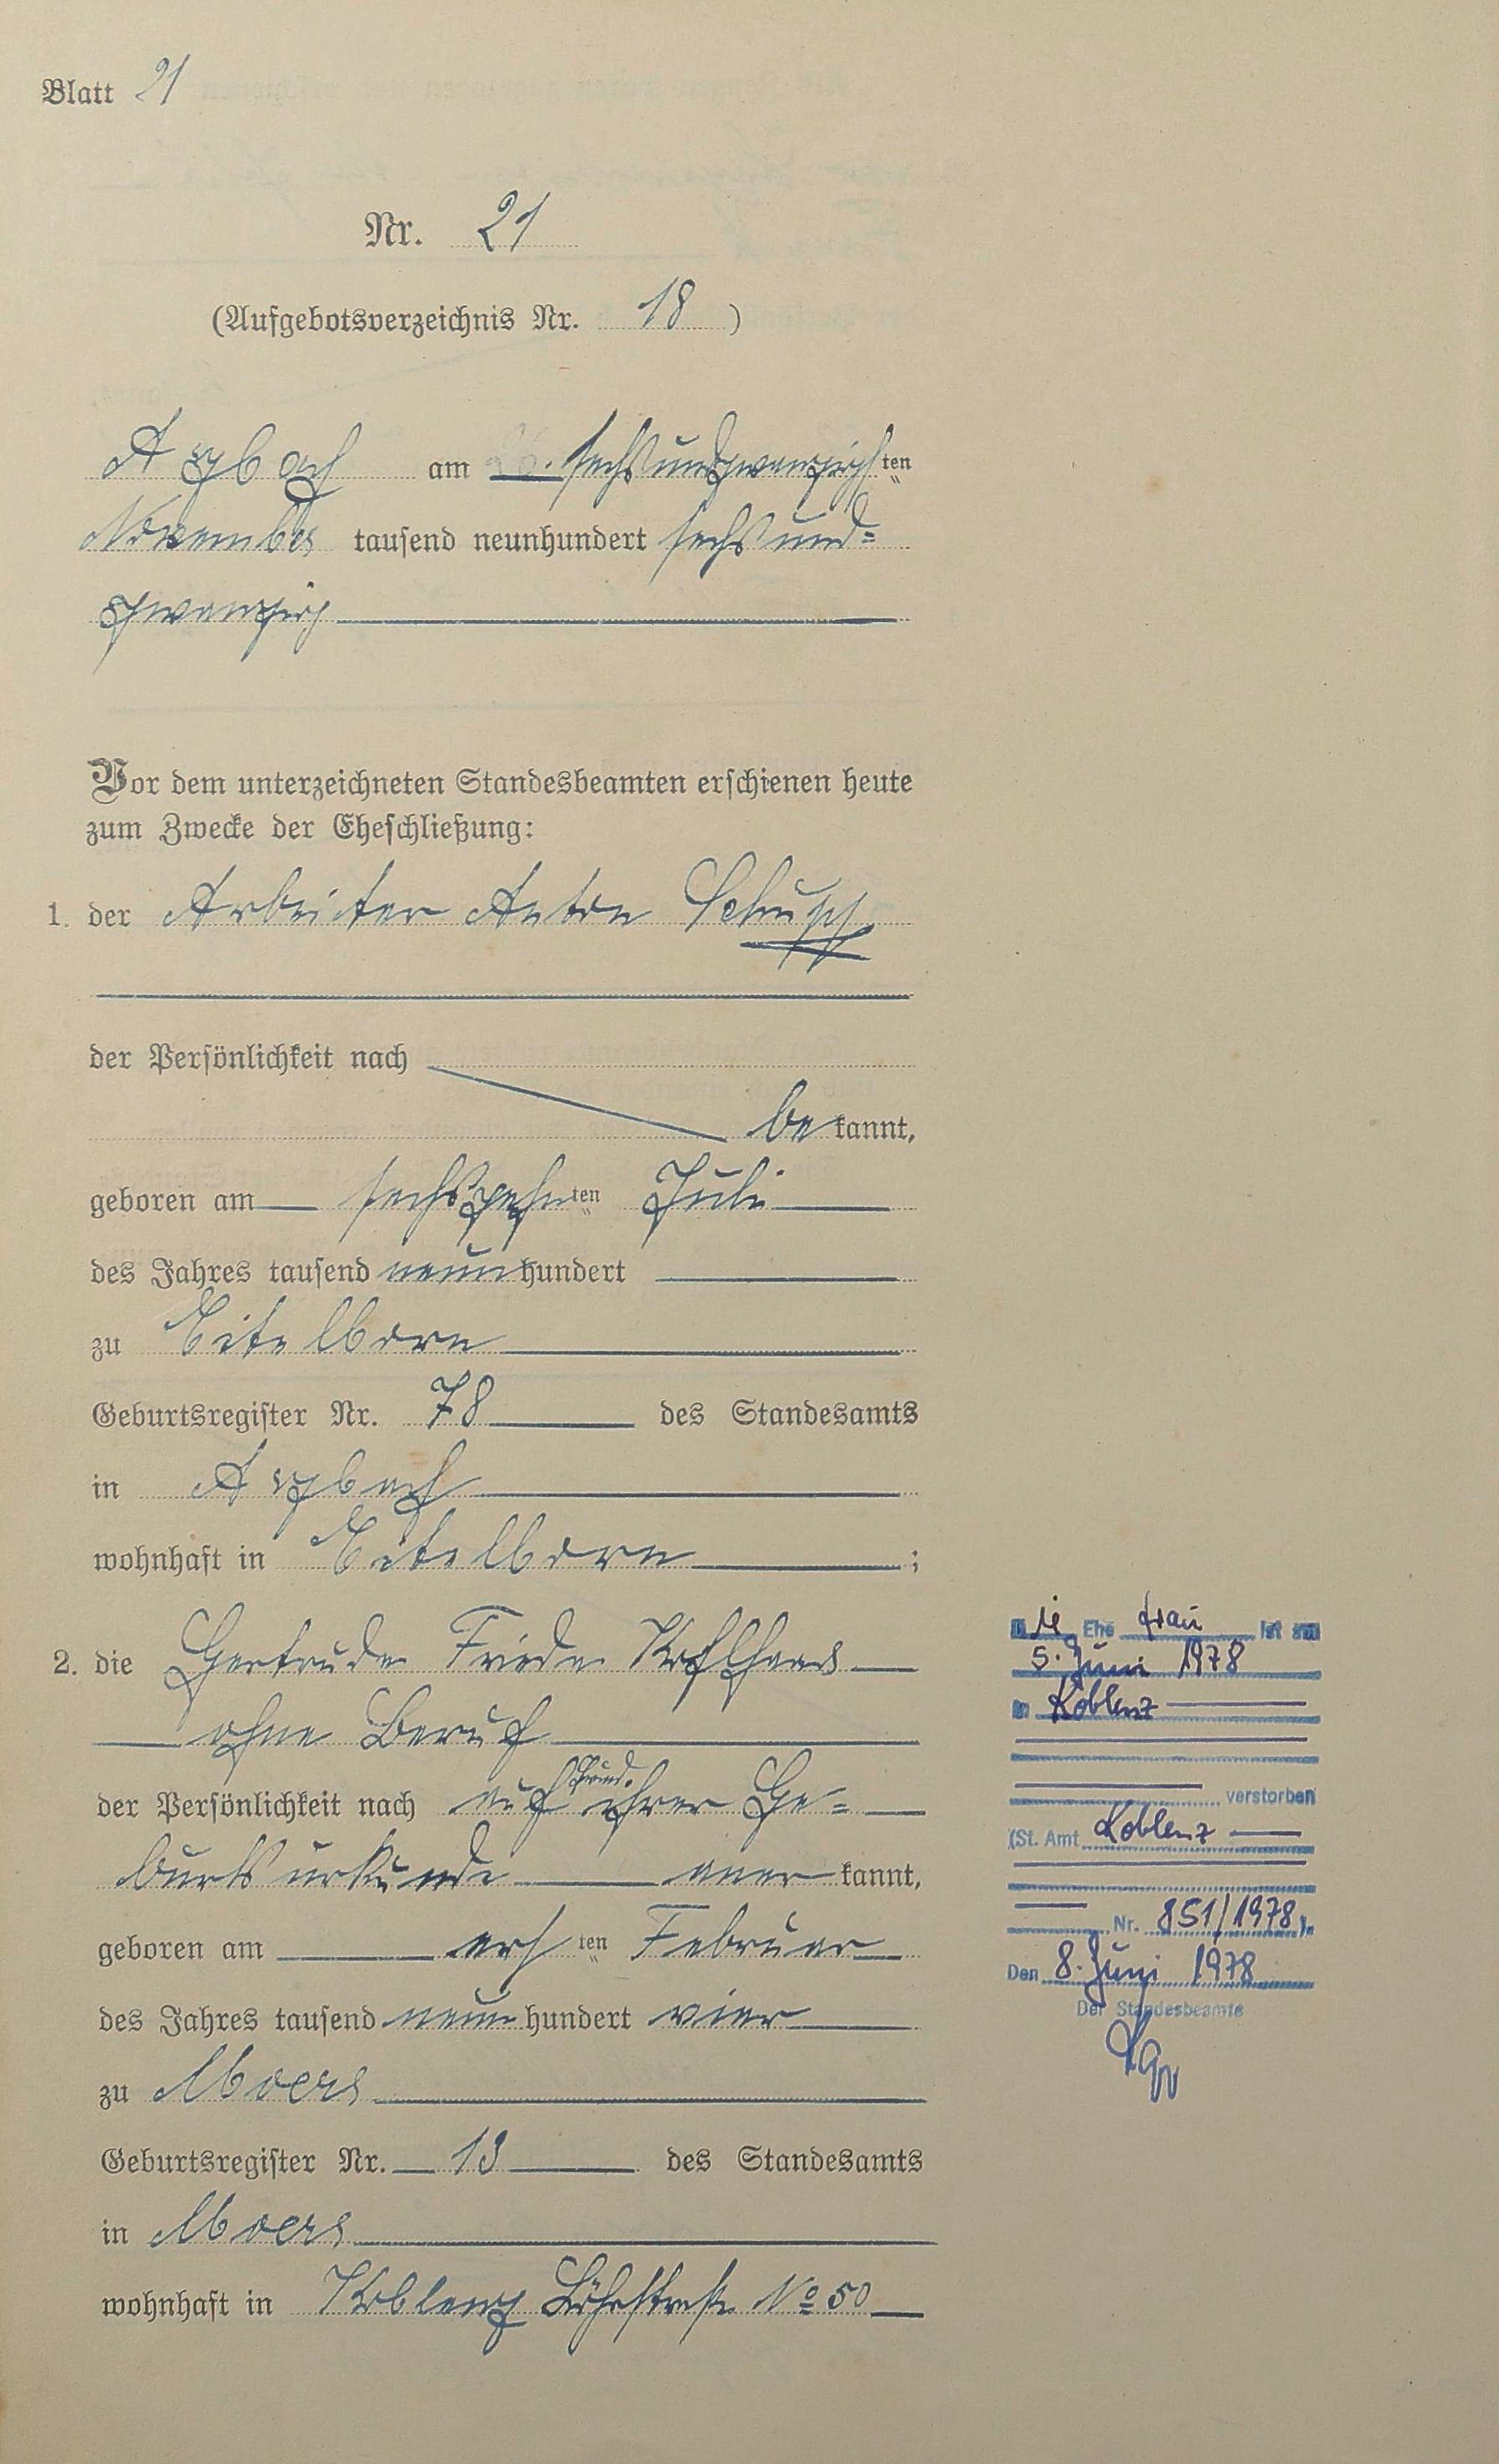 Blatt 21
Nr. 21
(Aufgebotsverzeichnis Nr. 18)
Arzbach am 26. sechsundzwanzigsten
November tausend neunhundert sechsund=
zwanzig
Vor dem unterzeichneten Standesbeamten erschienen heute
zum Zwecke der Eheschließung:
1. der Arbeiter Anton Schupp
der Persönlichkeit nach
bekannt,
geboren am sechszehnten Juli
des Jahres tausend neunhundert
zu Eitelborn
Geburtsregister Nr. 78 des Standesamts
in Arzbach
wohnhaft in Eitelborn;
2. die Gertrude Frieda Kohlhaas
ohne Beruf
der Persönlichkeit nach auf Grund ihrer Ge=
burtsurkunde anerkannt,
geboren am ersten Februar
des Jahres tausend neunhundert vier
zu Moers
Geburtsregister Nr. 13 des Standesamts
in Moers
wohnhaft in Koblenz Löhrstraße No 50
Die Ehefrau ist am
5. Juni 1978
in Koblenz
verstorben
(St. Amt Koblenz
Nr. 851/1978).
Den 8. Juni 1978
Der Standesbeamte